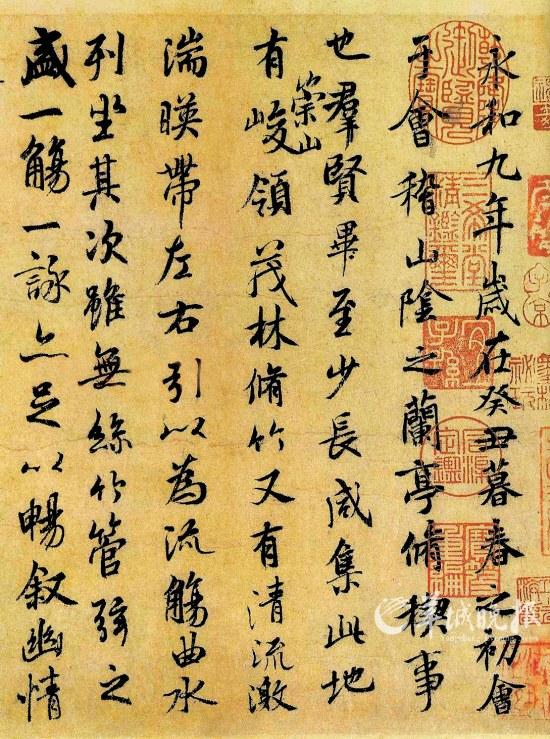 永和九年歲在癸丑暮春之初會
于會稽山陰之蘭亭脩稧事
也羣賢畢至少長咸集此地
有崇山峻領茂林脩竹又有清流激
湍暎帶左右引以為流觴曲水
列坐其次雖無絲竹管弦之
盛一觴一詠亦足以暢叙幽情
三希堂精鑑璽
宜子孫
羊城晚報